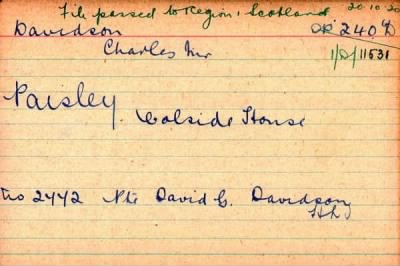 File passed to Region, Scotland 20.10.20
Davidson DR 240 D
Charles Mr 1/D/11531
Paisley. Colside House
tio 2442 Pte David C. Davidson
HLI